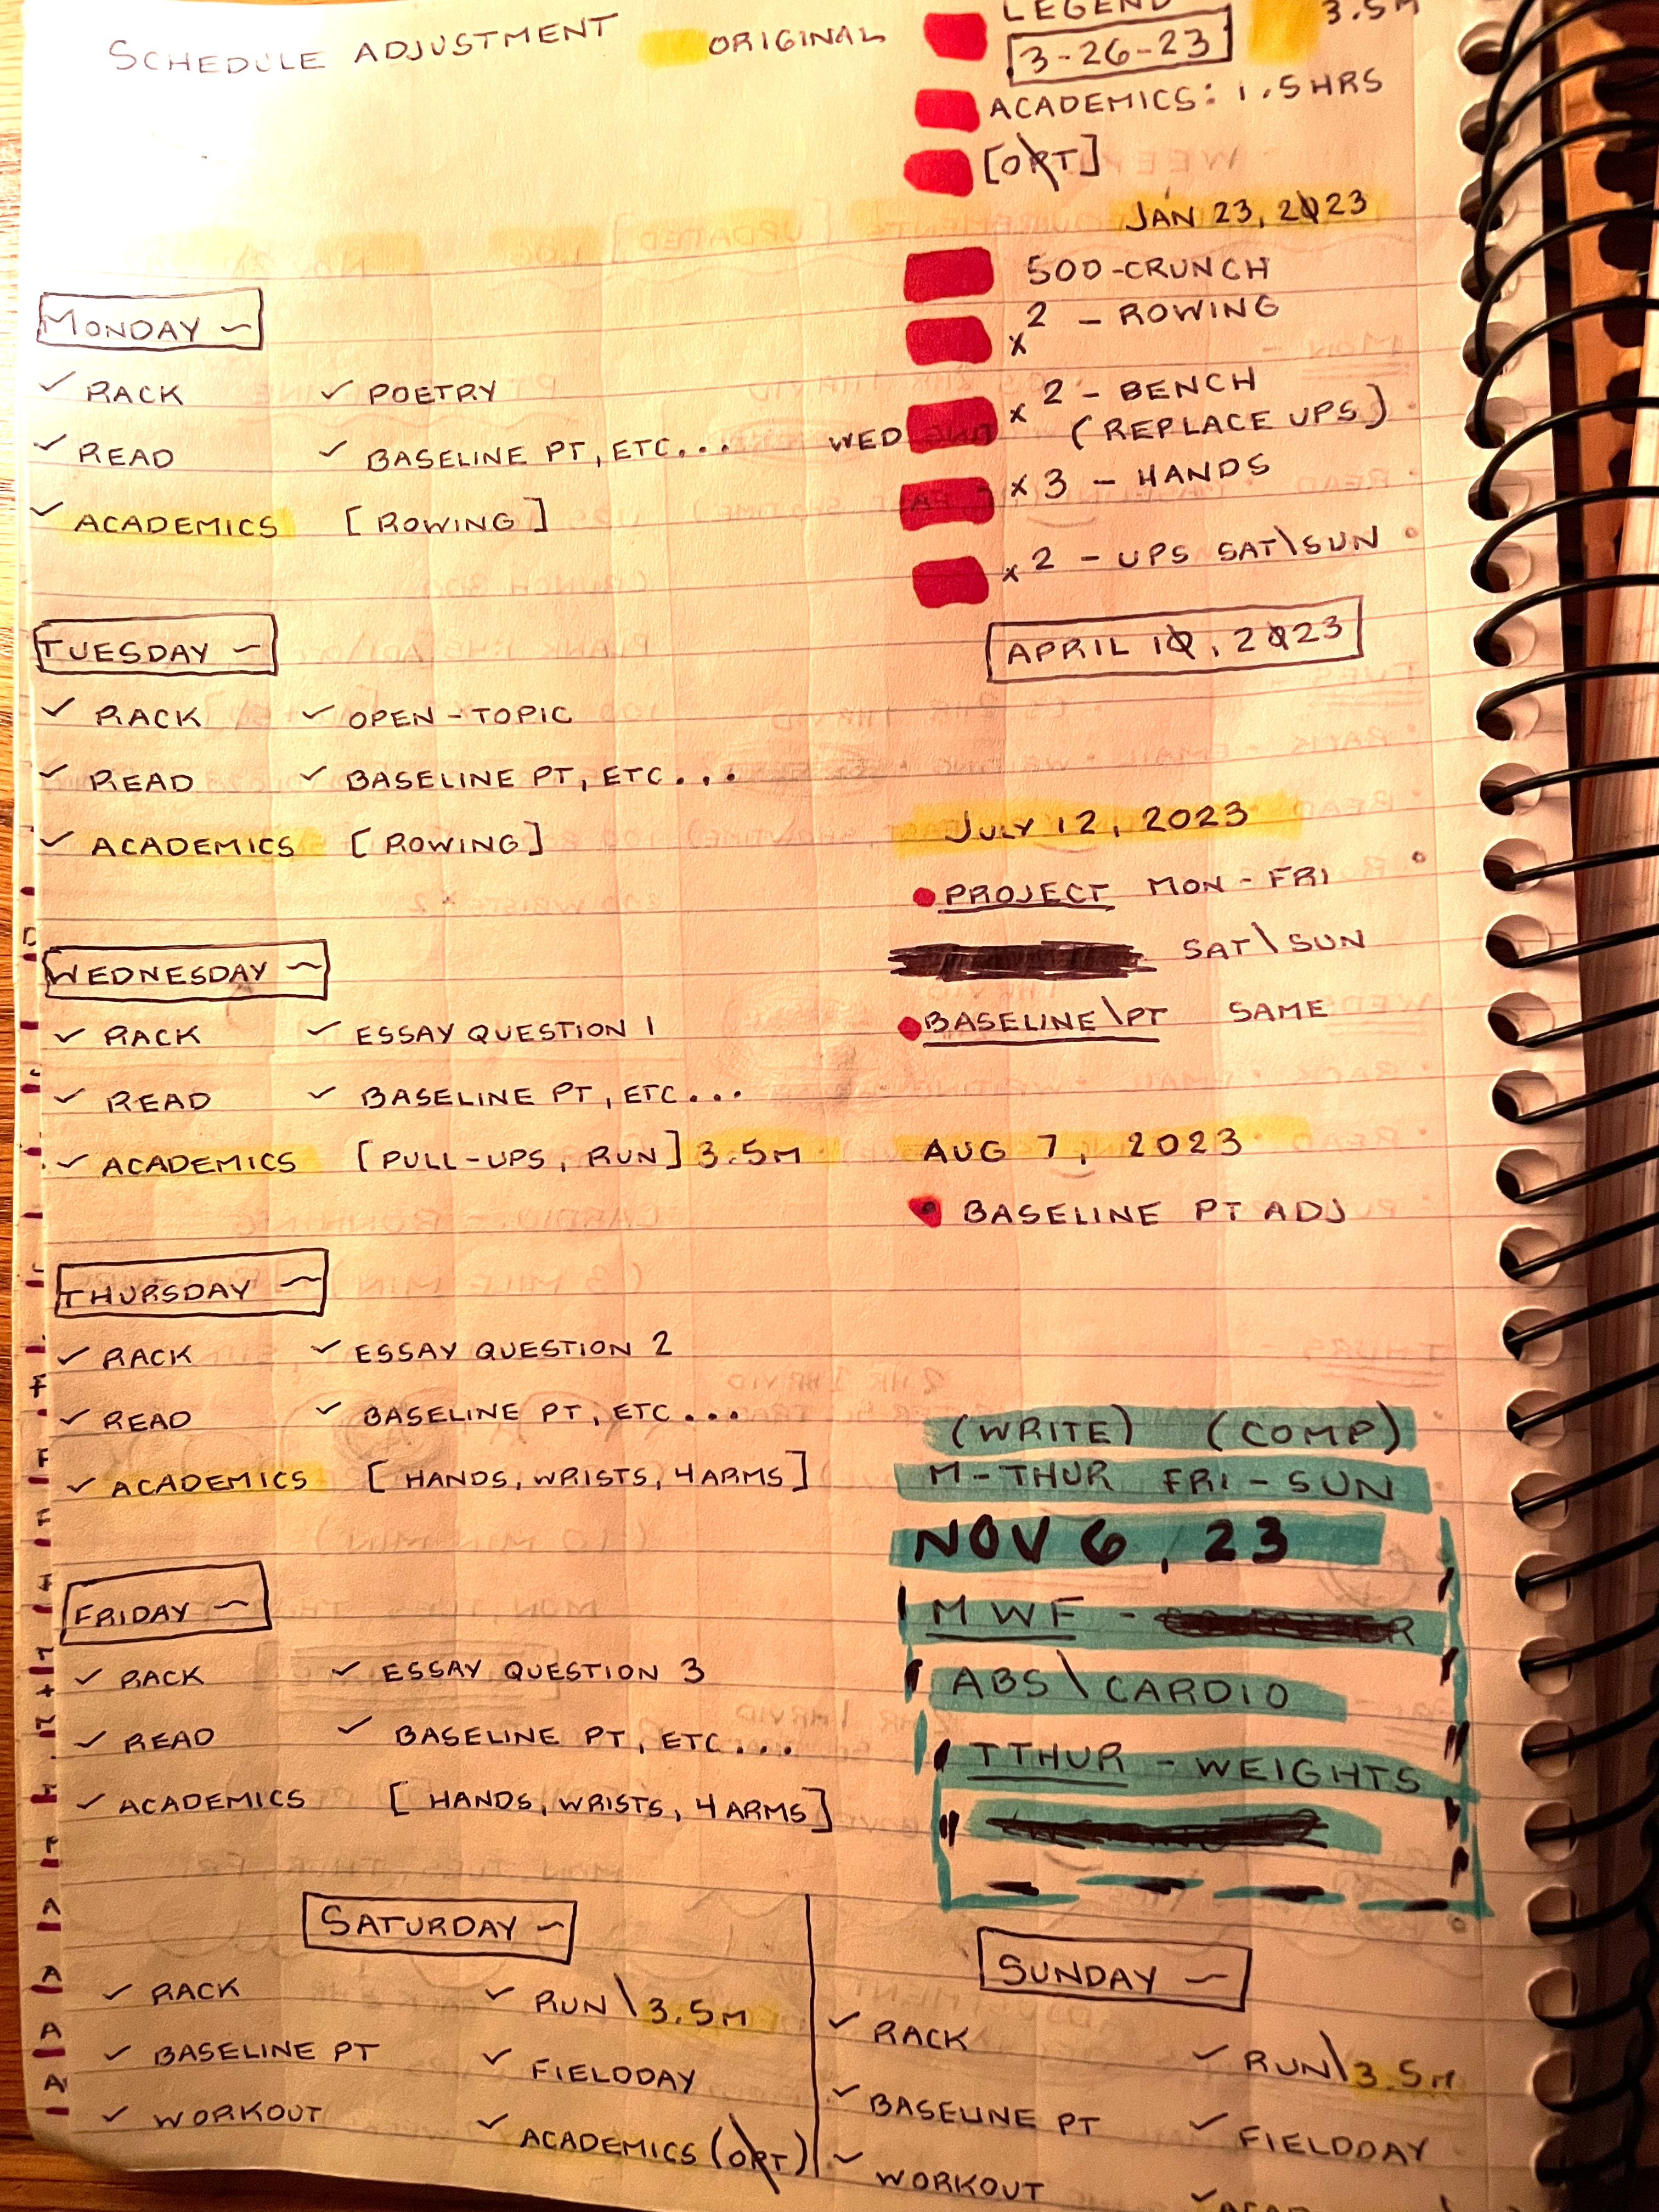 SCHEDULE ADJUSTMENT ORIGINAL
LEGEND 3.5M
3-26-23
ACADEMICS: 1.5 HRS
[OPT]
JAN 23, 2023
500-CRUNCH
x2 - ROWING
WED x2 - BENCH
(REPLACE UPS)
x3 - HANDS
x2 - UPS SAT\SUN
APRIL 10, 2023
JULY 12, 2023
PROJECT MON-FRI
SAT\SUN
BASELINE\PT SAME
AUG 7, 2023
BASELINE PT ADJ
(WRITE) (COMP)
M-THUR FRI-SUN
NOV 6, 23
MWF -
ABS\CARDIO
TTHUR - WEIGHTS
MONDAY ~
✓ RACK ✓ POETRY
✓ READ ✓ BASELINE PT, ETC...
✓ ACADEMICS [ROWING]
TUESDAY ~
✓ RACK ✓ OPEN-TOPIC
✓ READ ✓ BASELINE PT, ETC...
✓ ACADEMICS [ROWING]
WEDNESDAY ~
✓ RACK ✓ ESSAY QUESTION 1
✓ READ ✓ BASELINE PT, ETC...
✓ ACADEMICS [PULL-UPS, RUN] 3.5M
THURSDAY ~
✓ RACK ✓ ESSAY QUESTION 2
✓ READ ✓ BASELINE PT, ETC...
✓ ACADEMICS [HANDS, WRISTS, 4ARMS]
FRIDAY ~
✓ RACK ✓ ESSAY QUESTION 3
✓ READ ✓ BASELINE PT, ETC...
✓ ACADEMICS [HANDS, WRISTS, 4ARMS]
SATURDAY ~
✓ RACK ✓ RUN\3.5M
✓ BASELINE PT ✓ FIELDDAY
✓ WORKOUT ✓ ACADEMICS (OPT)
SUNDAY ~
✓ RACK ✓ RUN\3.5M
✓ BASELINE PT ✓ FIELDDAY
✓ WORKOUT